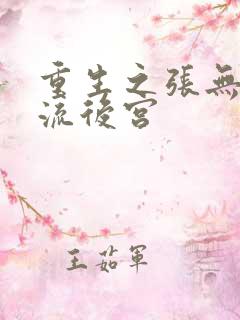 重生之張無
流後宮
王茹軍